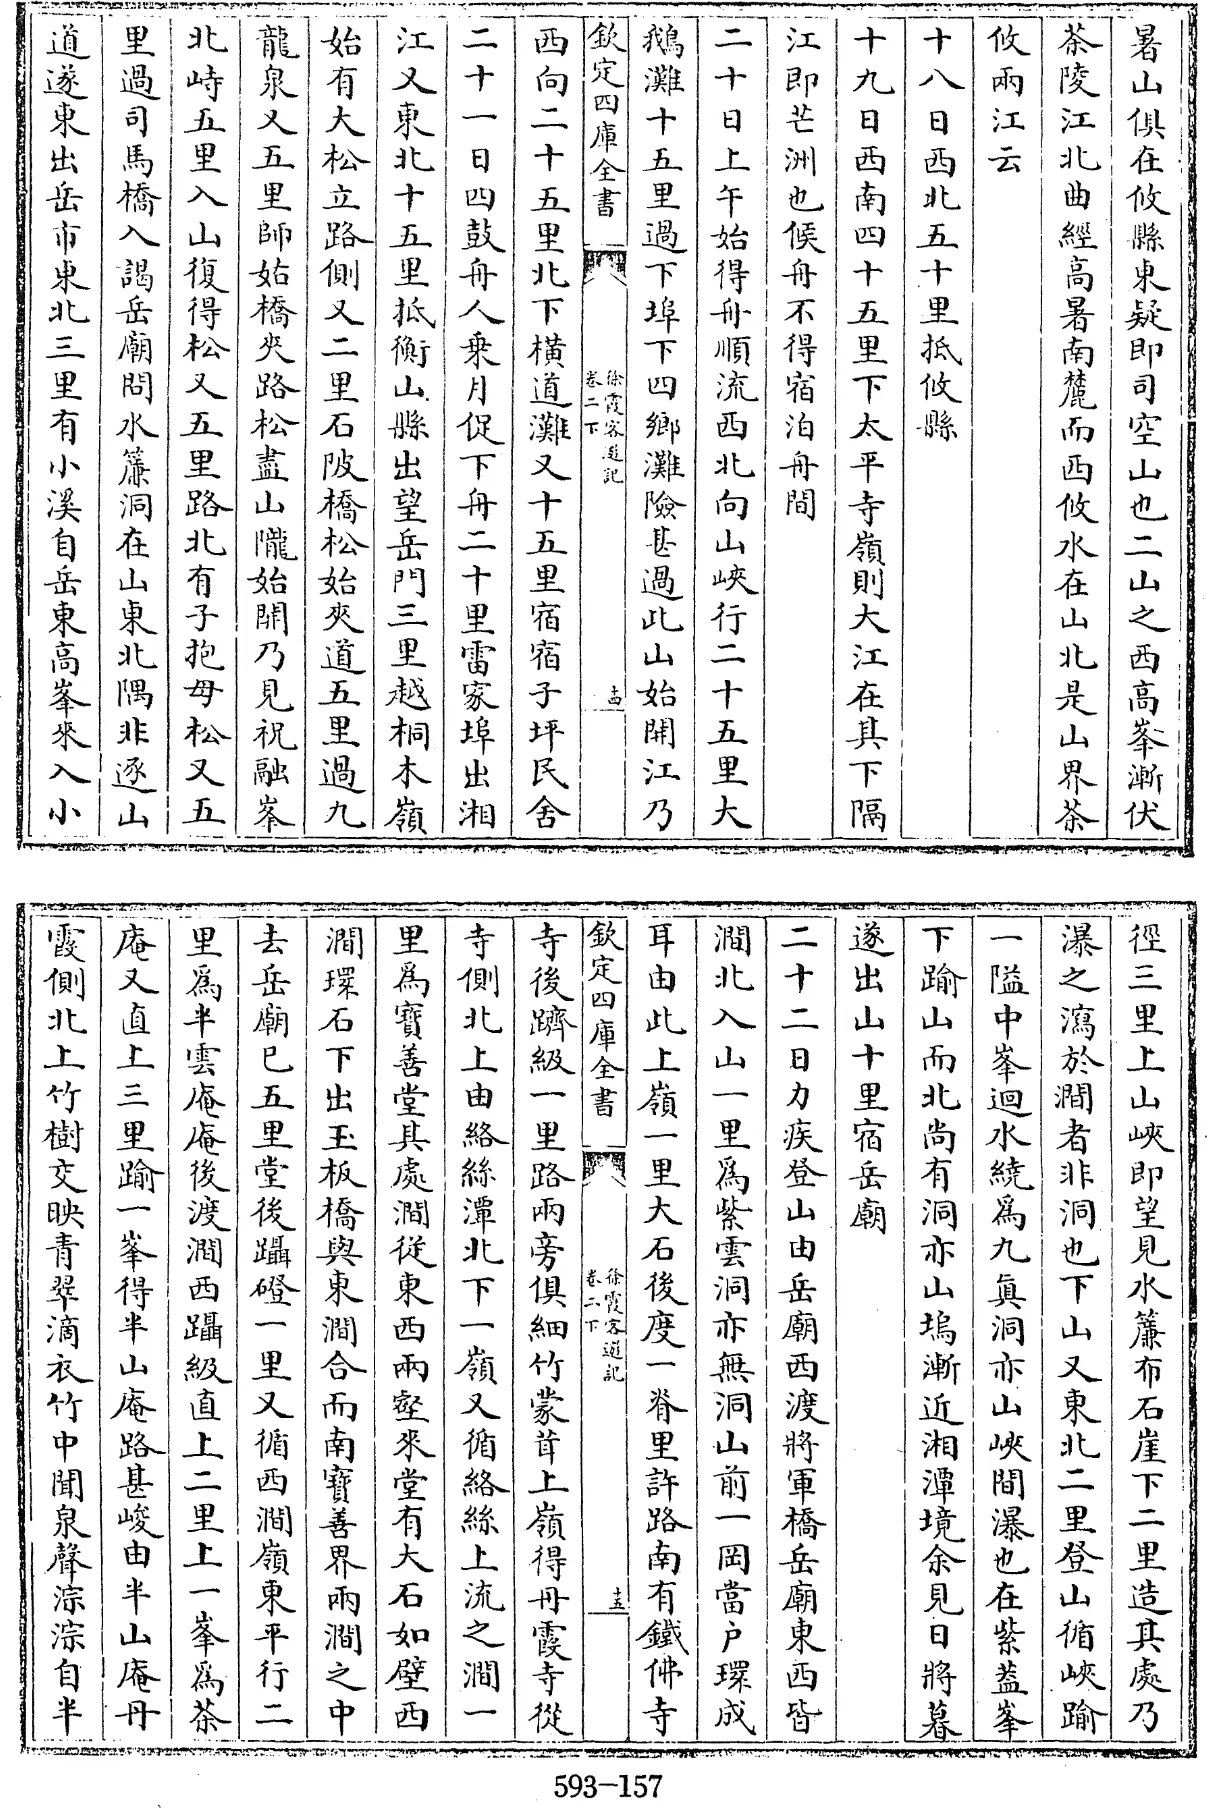 暑山俱在攸縣東疑即司空山也二山之西高峯漸伏
茶陵江北曲經高暑南麓而西攸水在山北是山界茶
攸兩江云
十八日西北五十里抵攸縣
十九日西南四十五里下太平寺嶺則大江在其下隔
江即芒洲也候舟不得宿泊舟間
二十日上午始得舟順流西北向山峽行二十五里大
鵝灘十五里過下埠下四鄉灘險甚過此山始開江乃
欽定四庫全書
徐霞客遊記
卷二下
十四
西向二十五里北下橫道灘又十五里宿宿子坪民舍
二十一日四鼓舟人乗月促下舟二十里雷家埠出湘
江又東北十五里抵衡山縣出望岳門三里越桐木嶺
始有大松立路側又二里石陂橋松始夾道五里過九
龍泉又五里師姑橋夾路松盡山隴始開乃見祝融峯
北峙五里入山復得松又五里路北有子抱母松又五
里過司馬橋入謁岳廟問水簾洞在山東北隅非逐山
道遂東出岳市東北三里有小溪自岳東高峯來入小
徑三里上山峽即望見水簾布石崖下二里造其處乃
瀑之瀉於澗者非洞也下山又東北二里登山循峽踰
一隘中峯迴水繞爲九真洞亦山峽間瀑也在紫葢峯
下踰山而北尚有洞亦山塢漸近湘潭境余見日將暮
遂出山十里宿岳廟
二十二日力疾登山由岳廟西渡將軍橋岳廟東西皆
澗北入山一里爲紫雲洞亦無洞山前一岡當户環成
耳由此上嶺一里大石後度一脊里許路南有鐵佛寺
欽定四庫全書
徐霞客遊記
卷二下
十五
寺後躋級一里路兩旁俱細竹蒙茸上嶺得丹霞寺從
寺側北上由絡絲潭北下一嶺又循絡絲上流之澗一
里爲寶善堂其處澗從東西兩壑來堂有大石如壁西
澗環石下出玉板橋與東澗合而南寶善界兩澗之中
去岳廟已五里堂後躡磴一里又循西澗嶺東平行二
里爲半雲庵庵後渡澗西躡級直上二里上一峯爲茶
庵又直上三里踰一峯得半山庵路甚峻由半山庵丹
霞側北上竹樹交映青翠滴衣竹中聞泉聲淙淙自半
593-157